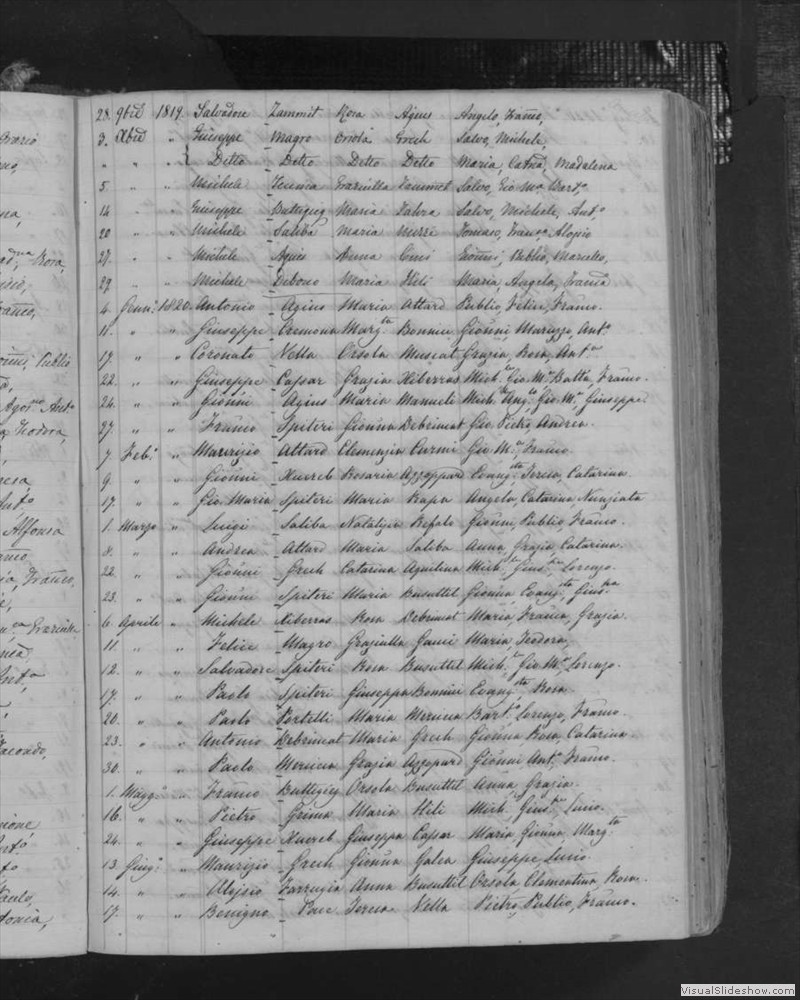 28. 9bre 1819. Salvadore Zammit Rosa Agius Angelo, Franco,
3. Xbre " Giuseppe Magro Orsola Grech Salvo, Michele,
" " " Detto Detto Detto Detto Maria, Catna, Madalena
5. " " Michele Graziulla Zammit Salvo, Gio Ma Barto
14 " " Giuseppe Buttigieg Maria Salvo, Michele, Anto
20 " " Michele Saliba Maria Tomaso, Alojsio
27. " " Michele Agius Anna Gionni, Publio, Marcello,
29. " " Michele Debono Maria Xeli Maria, Angela, Franca
4. Genn: 1820. Antonio Agius Maria Attard Publio, Felice, Franco.
11. " " Giuseppe Cremona Margta Bonnici Gionni, Maruzzo, Anto
17. " " Coronato Vella Orsola Muscat Grazia, Rosa, Anta
22. " " Giuseppe Capsar Grazia Xiberras Miche Gio Ma Batta, Franco.
24. " " Gionni Agius Maria Manueli Miche Ango Gio Ma Giuseppe
27. " " Franco Spiteri Gionna Debrincat Gio Pietro Andrea.
7. Feb.o " Maurizio Attard Clemenzia Curmi Gio Ma Franco.
9. " " Gionni Xuereb Rosaria Azzoppard Evangsta Teresa, Catarina.
17. " " Gio. Maria Spiteri Maria Rapa Angela, Catarina, Nunziata
1. Marzo " Luigi Saliba Natalizia Refalo Gionni, Publio, Franco.
8. " " Andrea Attard Maria Saliba Anna, Grazia, Catarina.
22. " " Gionni Grech Catarina Aquilina Miche Gius. Lorenzo.
23. " " Gionni Spiteri Maria Busuttil Gionna, Evangsta, Giuspa
6. Aprile " Michele Xiberras Rosa Debrincat Maria, Franca, Grazia.
11. " " Felice Magro Graziulla Gauci Maria Teodora,
12. " " Salvadore Spiteri Rosa Busuttil Miche Gio Ma Lorenzo.
17. " " Paolo Spiteri Giuseppa Bonnici Evangsta, Rosa.
20. " " Paolo Portelli Maria Mercieca Barto Lorenzo, Franco.
23. " " Antonio Debrincat Maria Grech Gionna, Rosa, Catarina.
30. " " Paolo Mercieca Grazia Azzoppard Gionni Anto Franco.
1. Magg.o " Franco Buttigieg Orsola Busuttil Anna Grazia.
16. " " Pietro Grima Maria Xeli Miche Gius. Lucio.
24. " " Giuseppe Xuereb Giuseppa Capsar Maria Gionna, Margta
13. Giug.o " Maurizio Grech Gionna Galea Giuseppe, Lucio.
14. " " Alojsio Farrugia Anna Busuttil Orsola, Clementina, Rosa.
17. " " Benigno Pace Teresa Vella Pietro, Publio, Franco.
VisualSlideshow.com